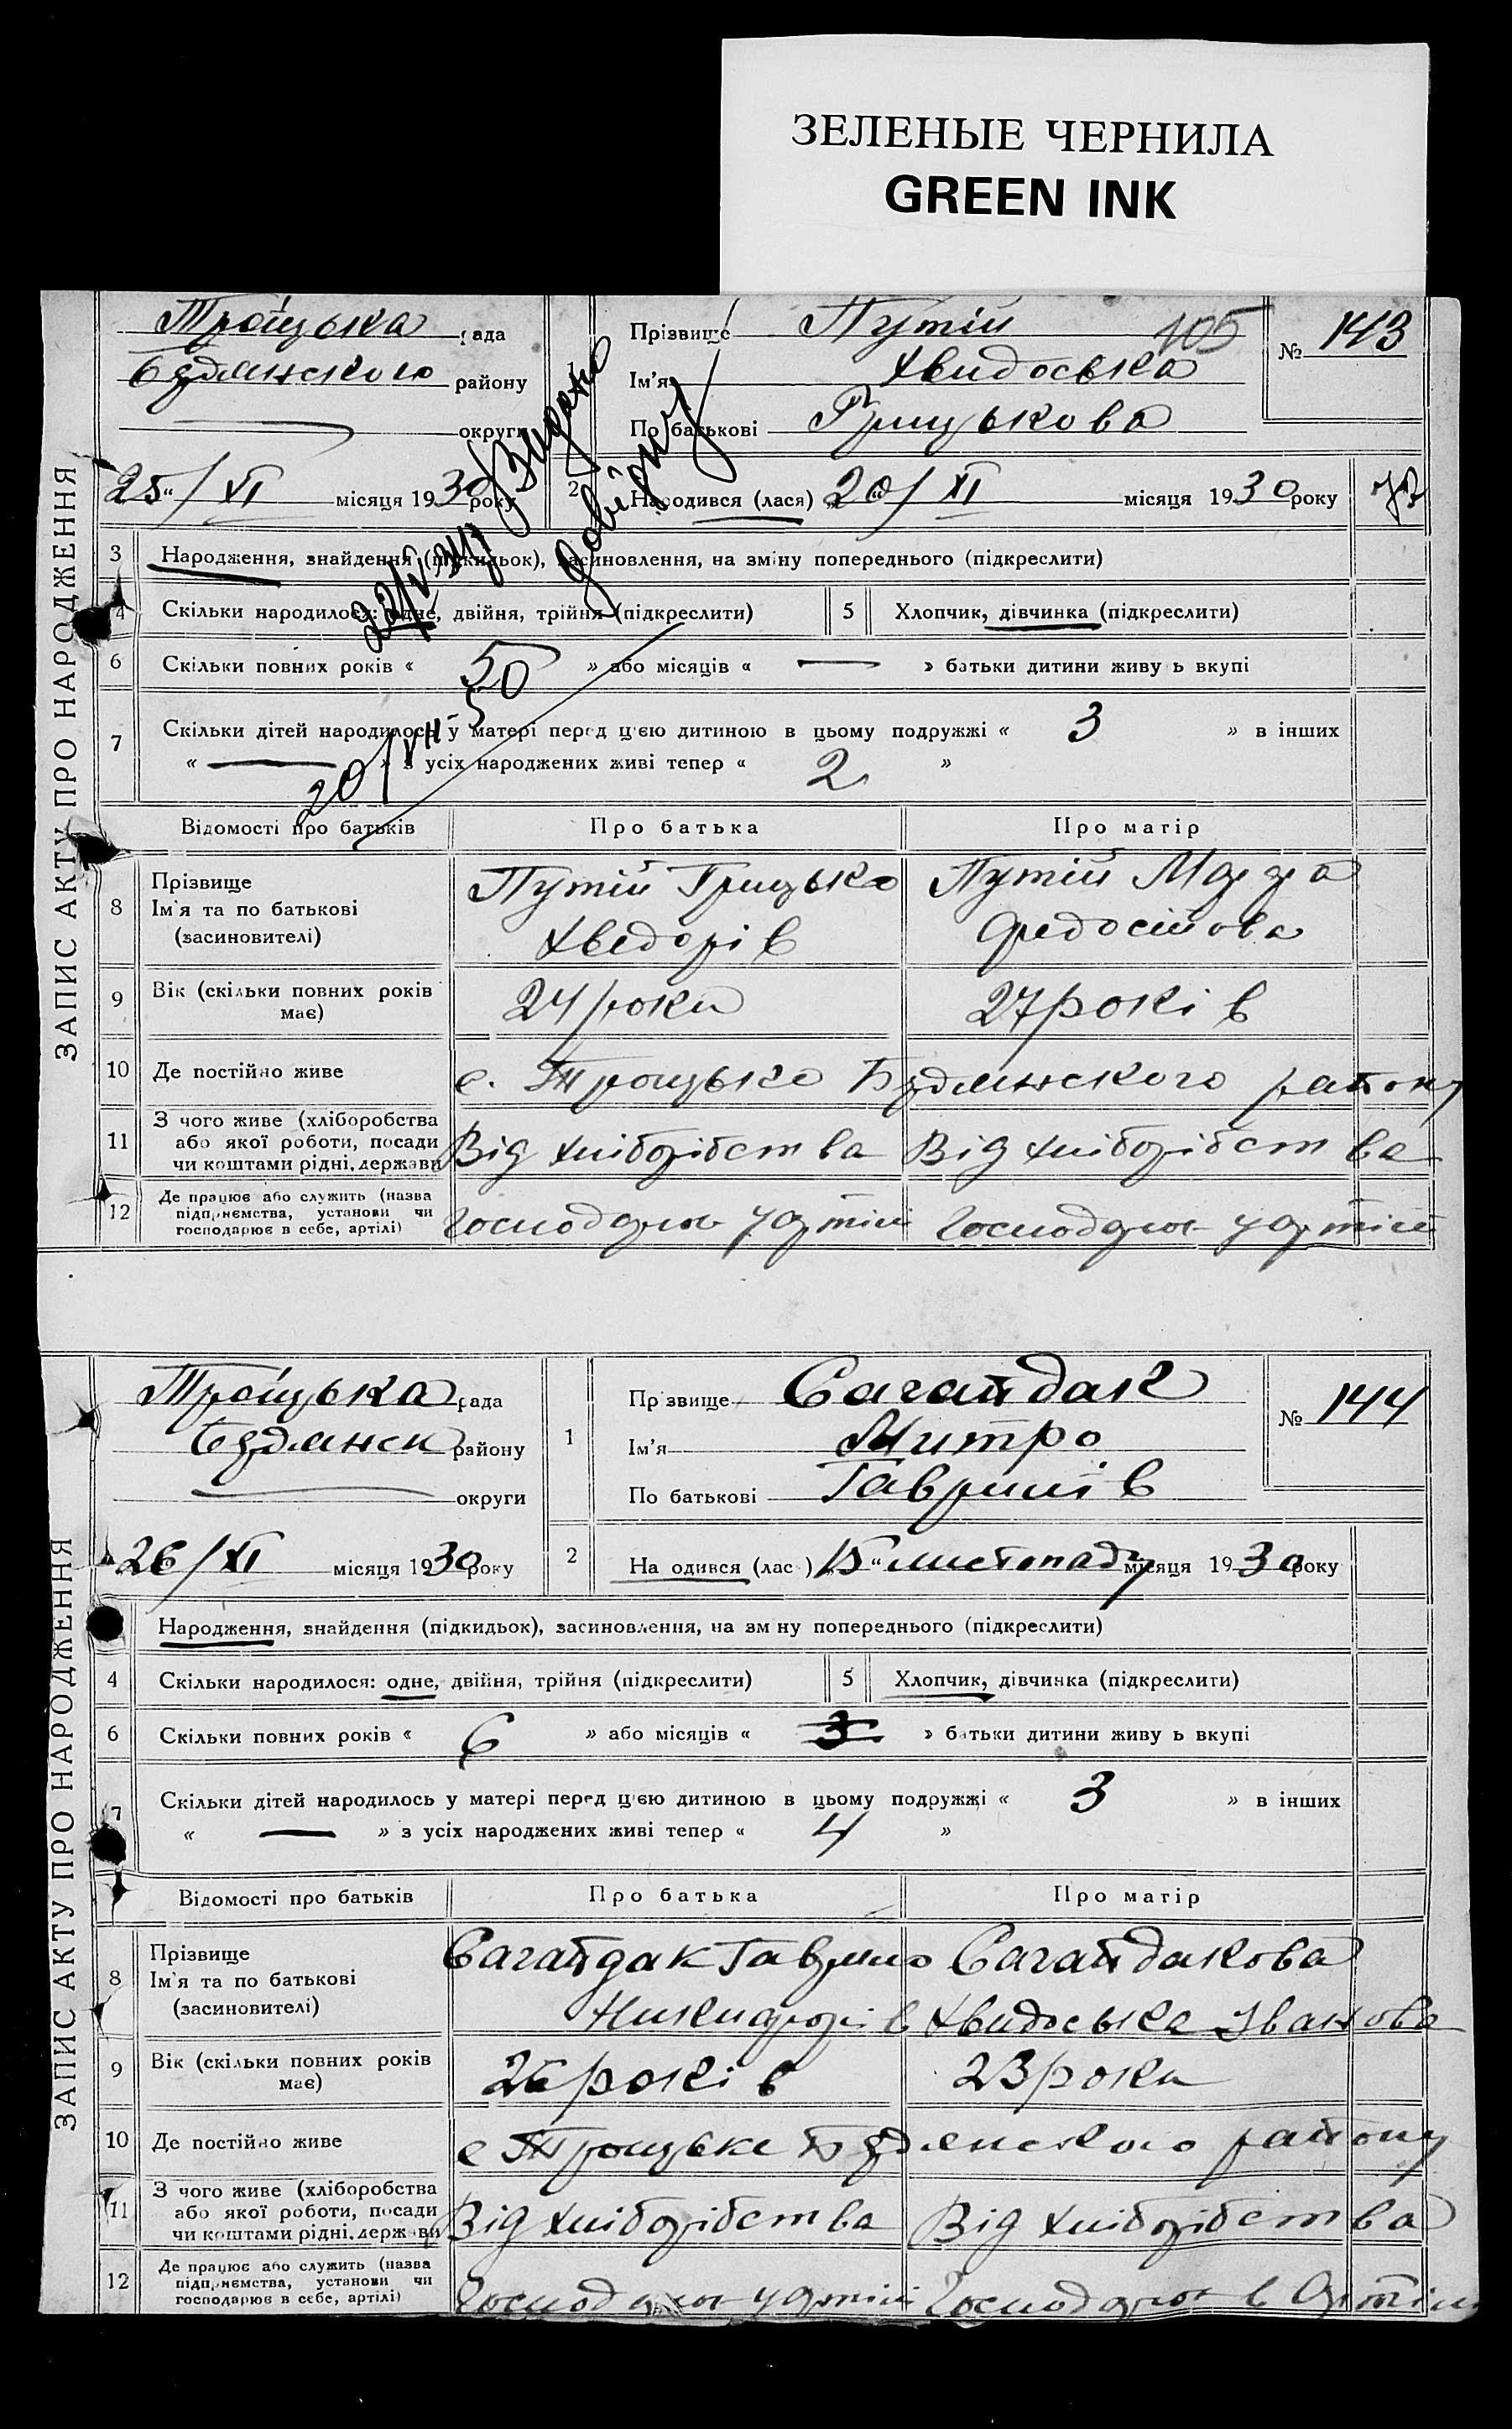 ЗЕЛЕНЫЕ ЧЕРНИЛА
GREEN INK
ЗАПИС АКТУ ПРО НАРОДЖЕННЯ
Троїцька рада
району
округи
25/XI місяця 1930 року
Прізвище Путій
Ім'я Хвидоська
По батькові Грицькова
105
№ 143
2 Народився (лася) 20/XI місяця 1930 року
Видано
довідку
3 Народження, знайдення (підкидьок), засиновлення, на зміну попереднього (підкреслити)
4 Скільки народилося: одне, двійня, трійня (підкреслити) 5 Хлопчик, дівчинка (підкреслити)
6 Скільки повних років « 5 » або місяців « — » батьки дитини живуь вкупі
7 Скільки дітей народилось у матері перед цією дитиною в цьому подружжі « 3 » в інших
« — » з усіх народжених живі тепер « 2 »
20/VII-50
Відомості про батьків Про батька Про матір
8 Прізвище
Ім'я та по батькові
(засиновителі)
Путій Грицько
Хведорів
Путій Мара
Федосійова
9 Вік (скільки повних років
має)
24 роки 27 років
10 Де постійно живе с. Троцьке району
11 З чого живе (хліборобства
або якої роботи, посади
чи коштами рідні, держави
Від хліборібства Від хліборібства
12 Де працює або служить (назва
підприємства, установи чи
господарює в себе, артілі)
Господарює у артілі Господарює у артілі
ЗАПИС АКТУ ПРО НАРОДЖЕННЯ
Троїцька рада
району
округи
26/XI місяця 1930 року
1 Прізвище Сагайдак
Ім'я Митро
По батькові Гаврилів
№ 144
2 Народився (лас ) 15 " листопаду місяця 1930 року
Народження, знайдення (підкидьок), засиновлення, на зм ну попереднього (підкреслити)
4 Скільки народилося: одне, двійня, трійня (підкреслити) 5 Хлопчик, дівчинка (підкреслити)
6 Скільки повних років « 6 » або місяців « 3 » батьки дитини живу ь вкупі
7 Скільки дітей народилось у матері перед цією дитиною в цьому подружжі « 3 » в інших
« — » з усіх народжених живі тепер « 4 »
Відомості про батьків Про батька Про матір
8 Прізвище
Ім'я та по батькові
(засиновителі)
Сагайдак Гаврило
Никифорів
Сагайдакова
Хвидоська Іванова
9 Вік (скільки повних років
має)
26 років 23 роки
10 Де постійно живе с Троцьке району
11 З чого живе (хліборобства
або якої роботи, посади
чи коштами рідні, держави
Від хліборібства Від хліборібства
12 Де працює або служить (назва
підприємства, установи чи
господарює в себе, артілі)
Господарює у артілі Господарює в Артілі